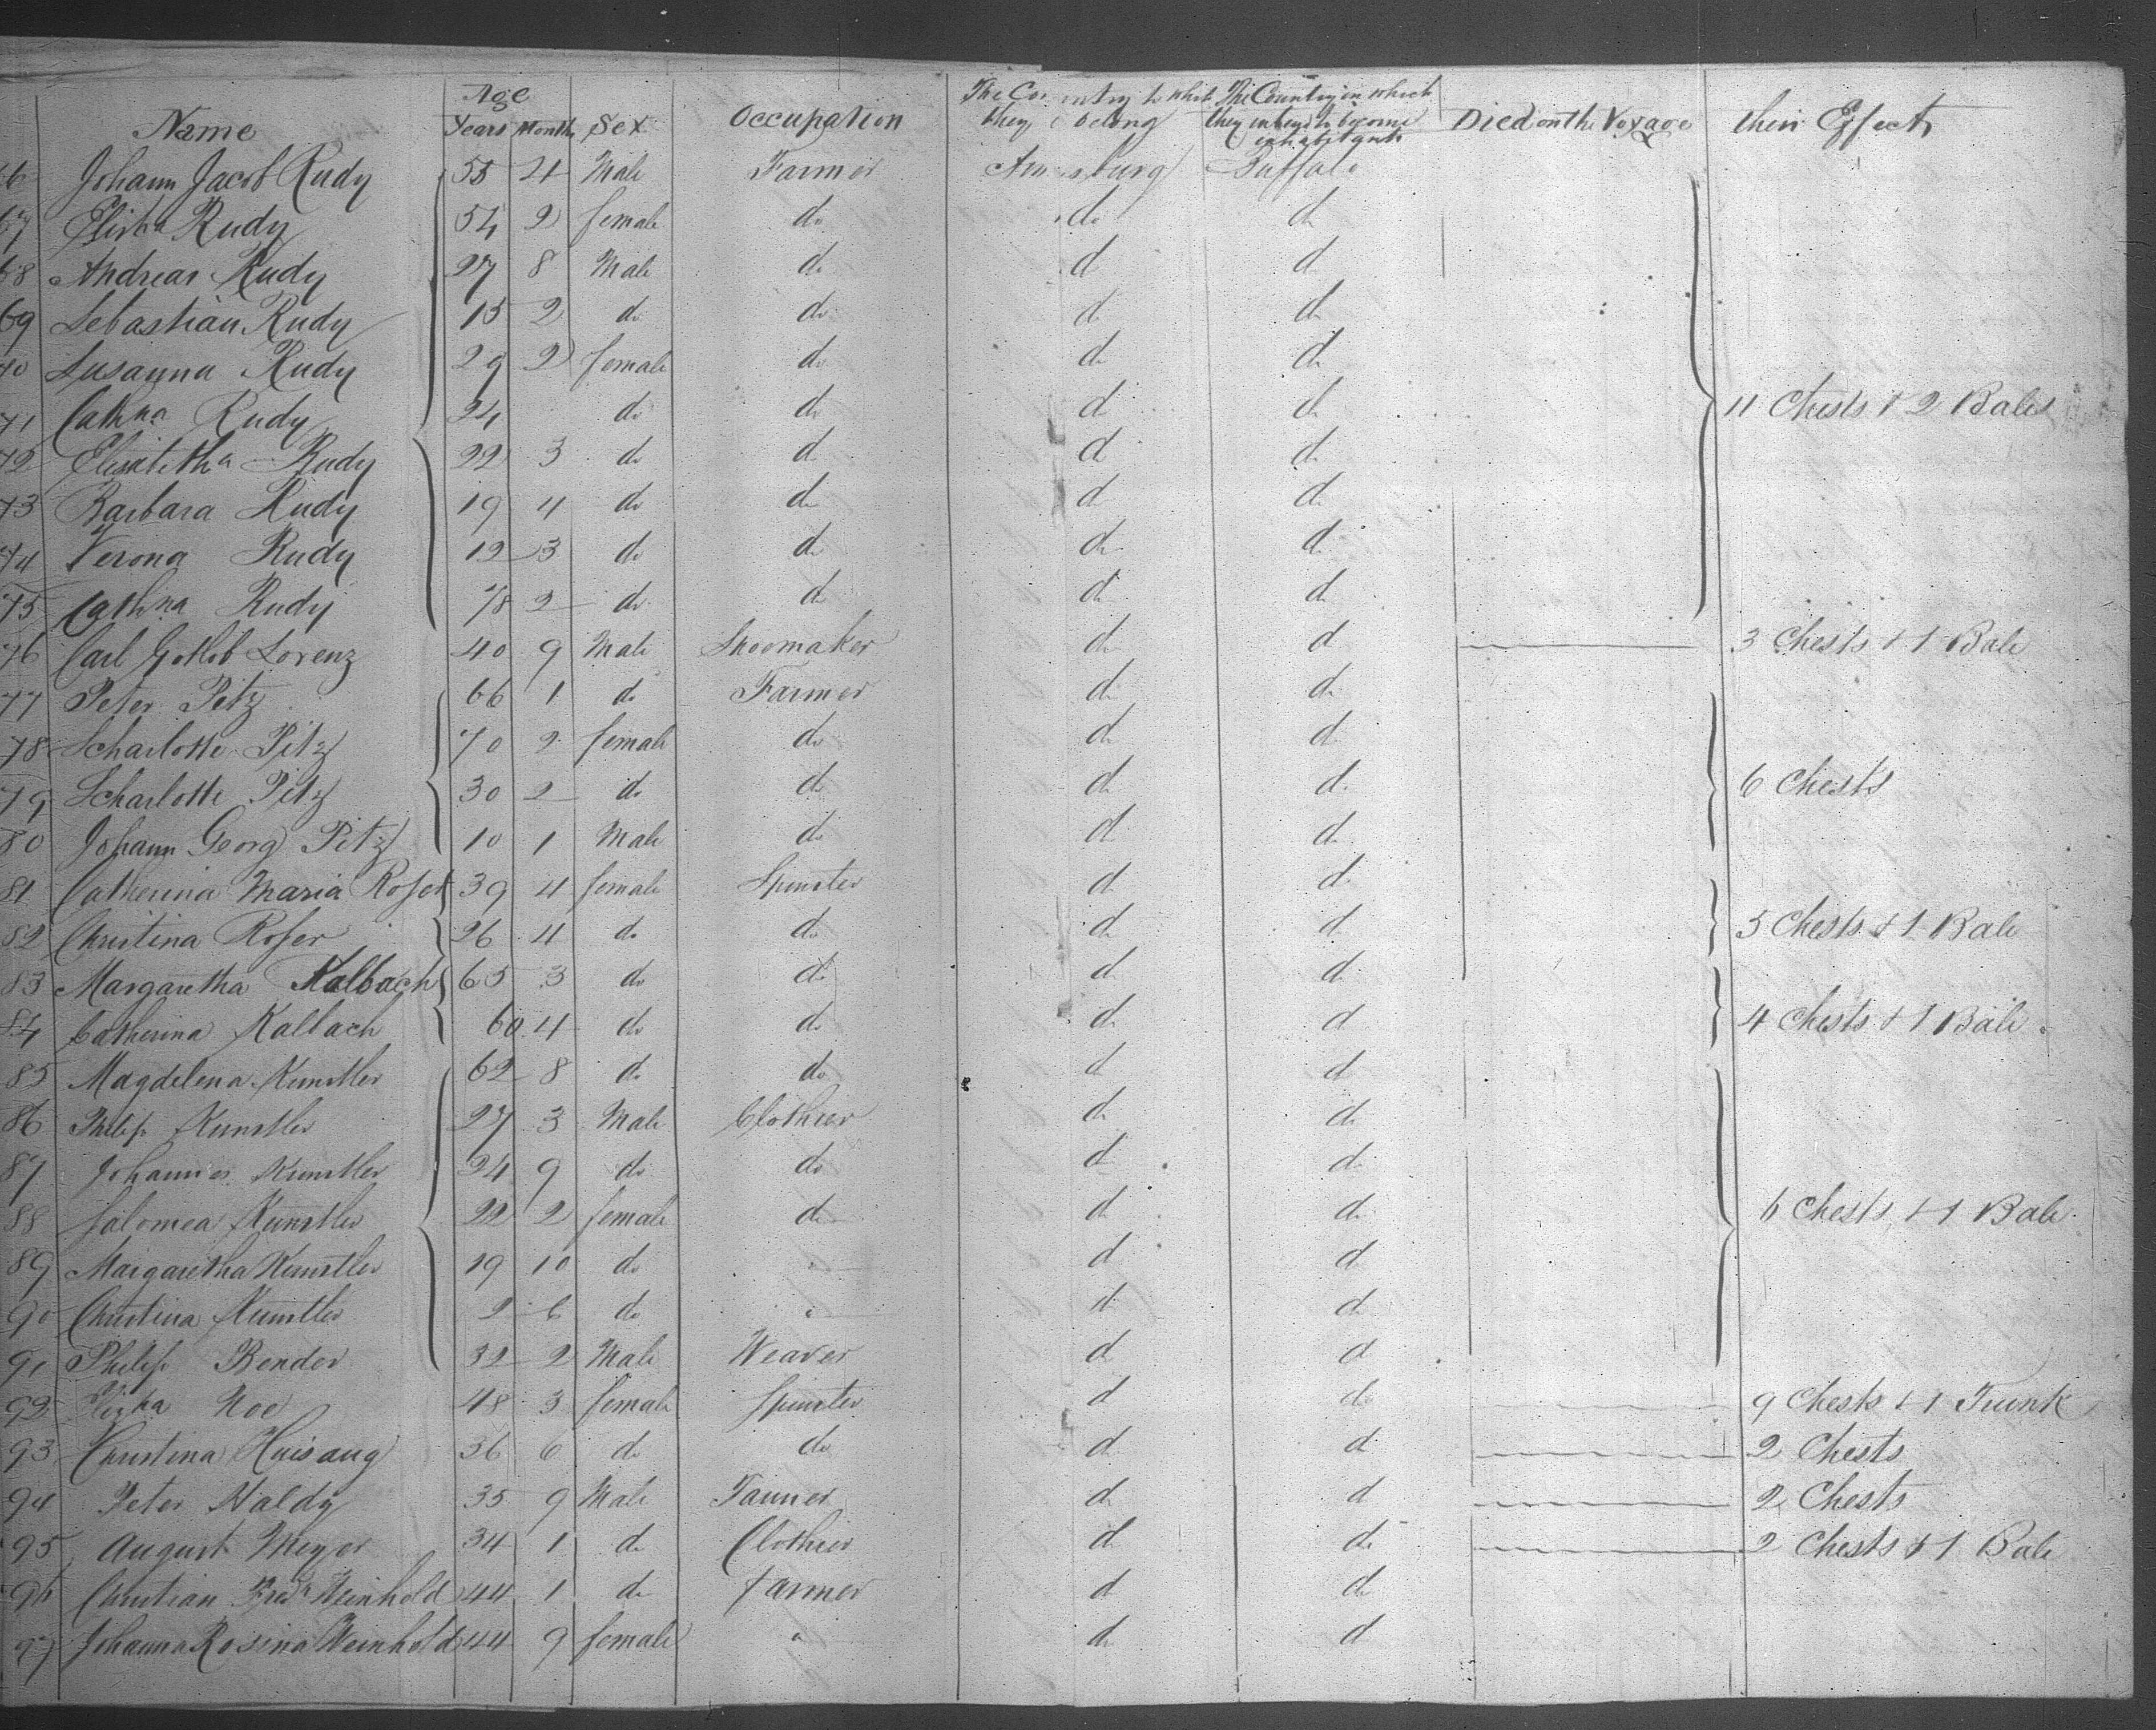 Name Age Years Months Sex Occupation The Country to which they belong The Country in which they intend to become inhabitants Died on the Voyage their Effects
66 Johann Jacob Rudy 55 4 Male Farmer Buffalo
67 Elisba Rudy 54 2 female do do d
68 Andreas Rudy 27 8 Male do d d
69 Sebastian Rudy 15 2 do do d do
70 Susanna Rudy 29 2 female do d do
71 Cathna Rudy 24 do do d d 11 Chests & 2 Bales
72 Elisabetha Rudy 22 3 do d d d
73 Barbara Rudy 19 4 do do d d
74 Verona Rudy 12 3 do do do d
75 Cathna Rudy 78 2 do do d d
76 Carl Gotlob Lorenz 40 9 Male Shoemaker do d 3 Chests & 1 Bale
77 Peter Pitz 66 1 do Farmer do d
78 Scharlotte Pitz 70 2 female do do d
79 Scharlotte Pitz 30 2 do do d d 6 Chests
80 Johann Georg Pitz 10 1 Male do d d
81 Catherina Maria Roser 39 4 female Spinster d d
82 Christina Roser 26 4 do do d d 5 Chests & 1 Bale
83 Margaretha Kalbach 65 3 do do d d
84 Catherina Kalbach 60 4 do do do d 4 Chests & 1 Bale
85 Magdelena Kunstler 62 8 do do d d
86 Philip Kunstler 27 3 Male Clothier d d
87 Johannes Kunstler 24 9 do do d d
88 Salomea Kunstler 22 2 female do d d 6 Chests & 1 Bale
89 Margaretha Kunstler 19 10 do d d
90 Christina Kunstler 2 6 do d d
91 Philip Bender 32 2 Male Weaver d d
92 Elizha Noe 48 3 female Spinster d do 9 Chests & 1 Trunk
93 Christina Huisaug 36 6 do do d d 2 Chests
94 Peter Haldy 35 9 Male Tanner do d 2 Chests
95 August Meyer 34 1 do Clothier d do 2 Chests & 1 Bale
96 Christian Fredk Weinhold 44 1 do Farmer d do
97 Johanna Rosina Weinhold 44 9 female " do d